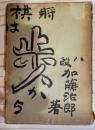 将棋は歩から
八段 加藤治郎著